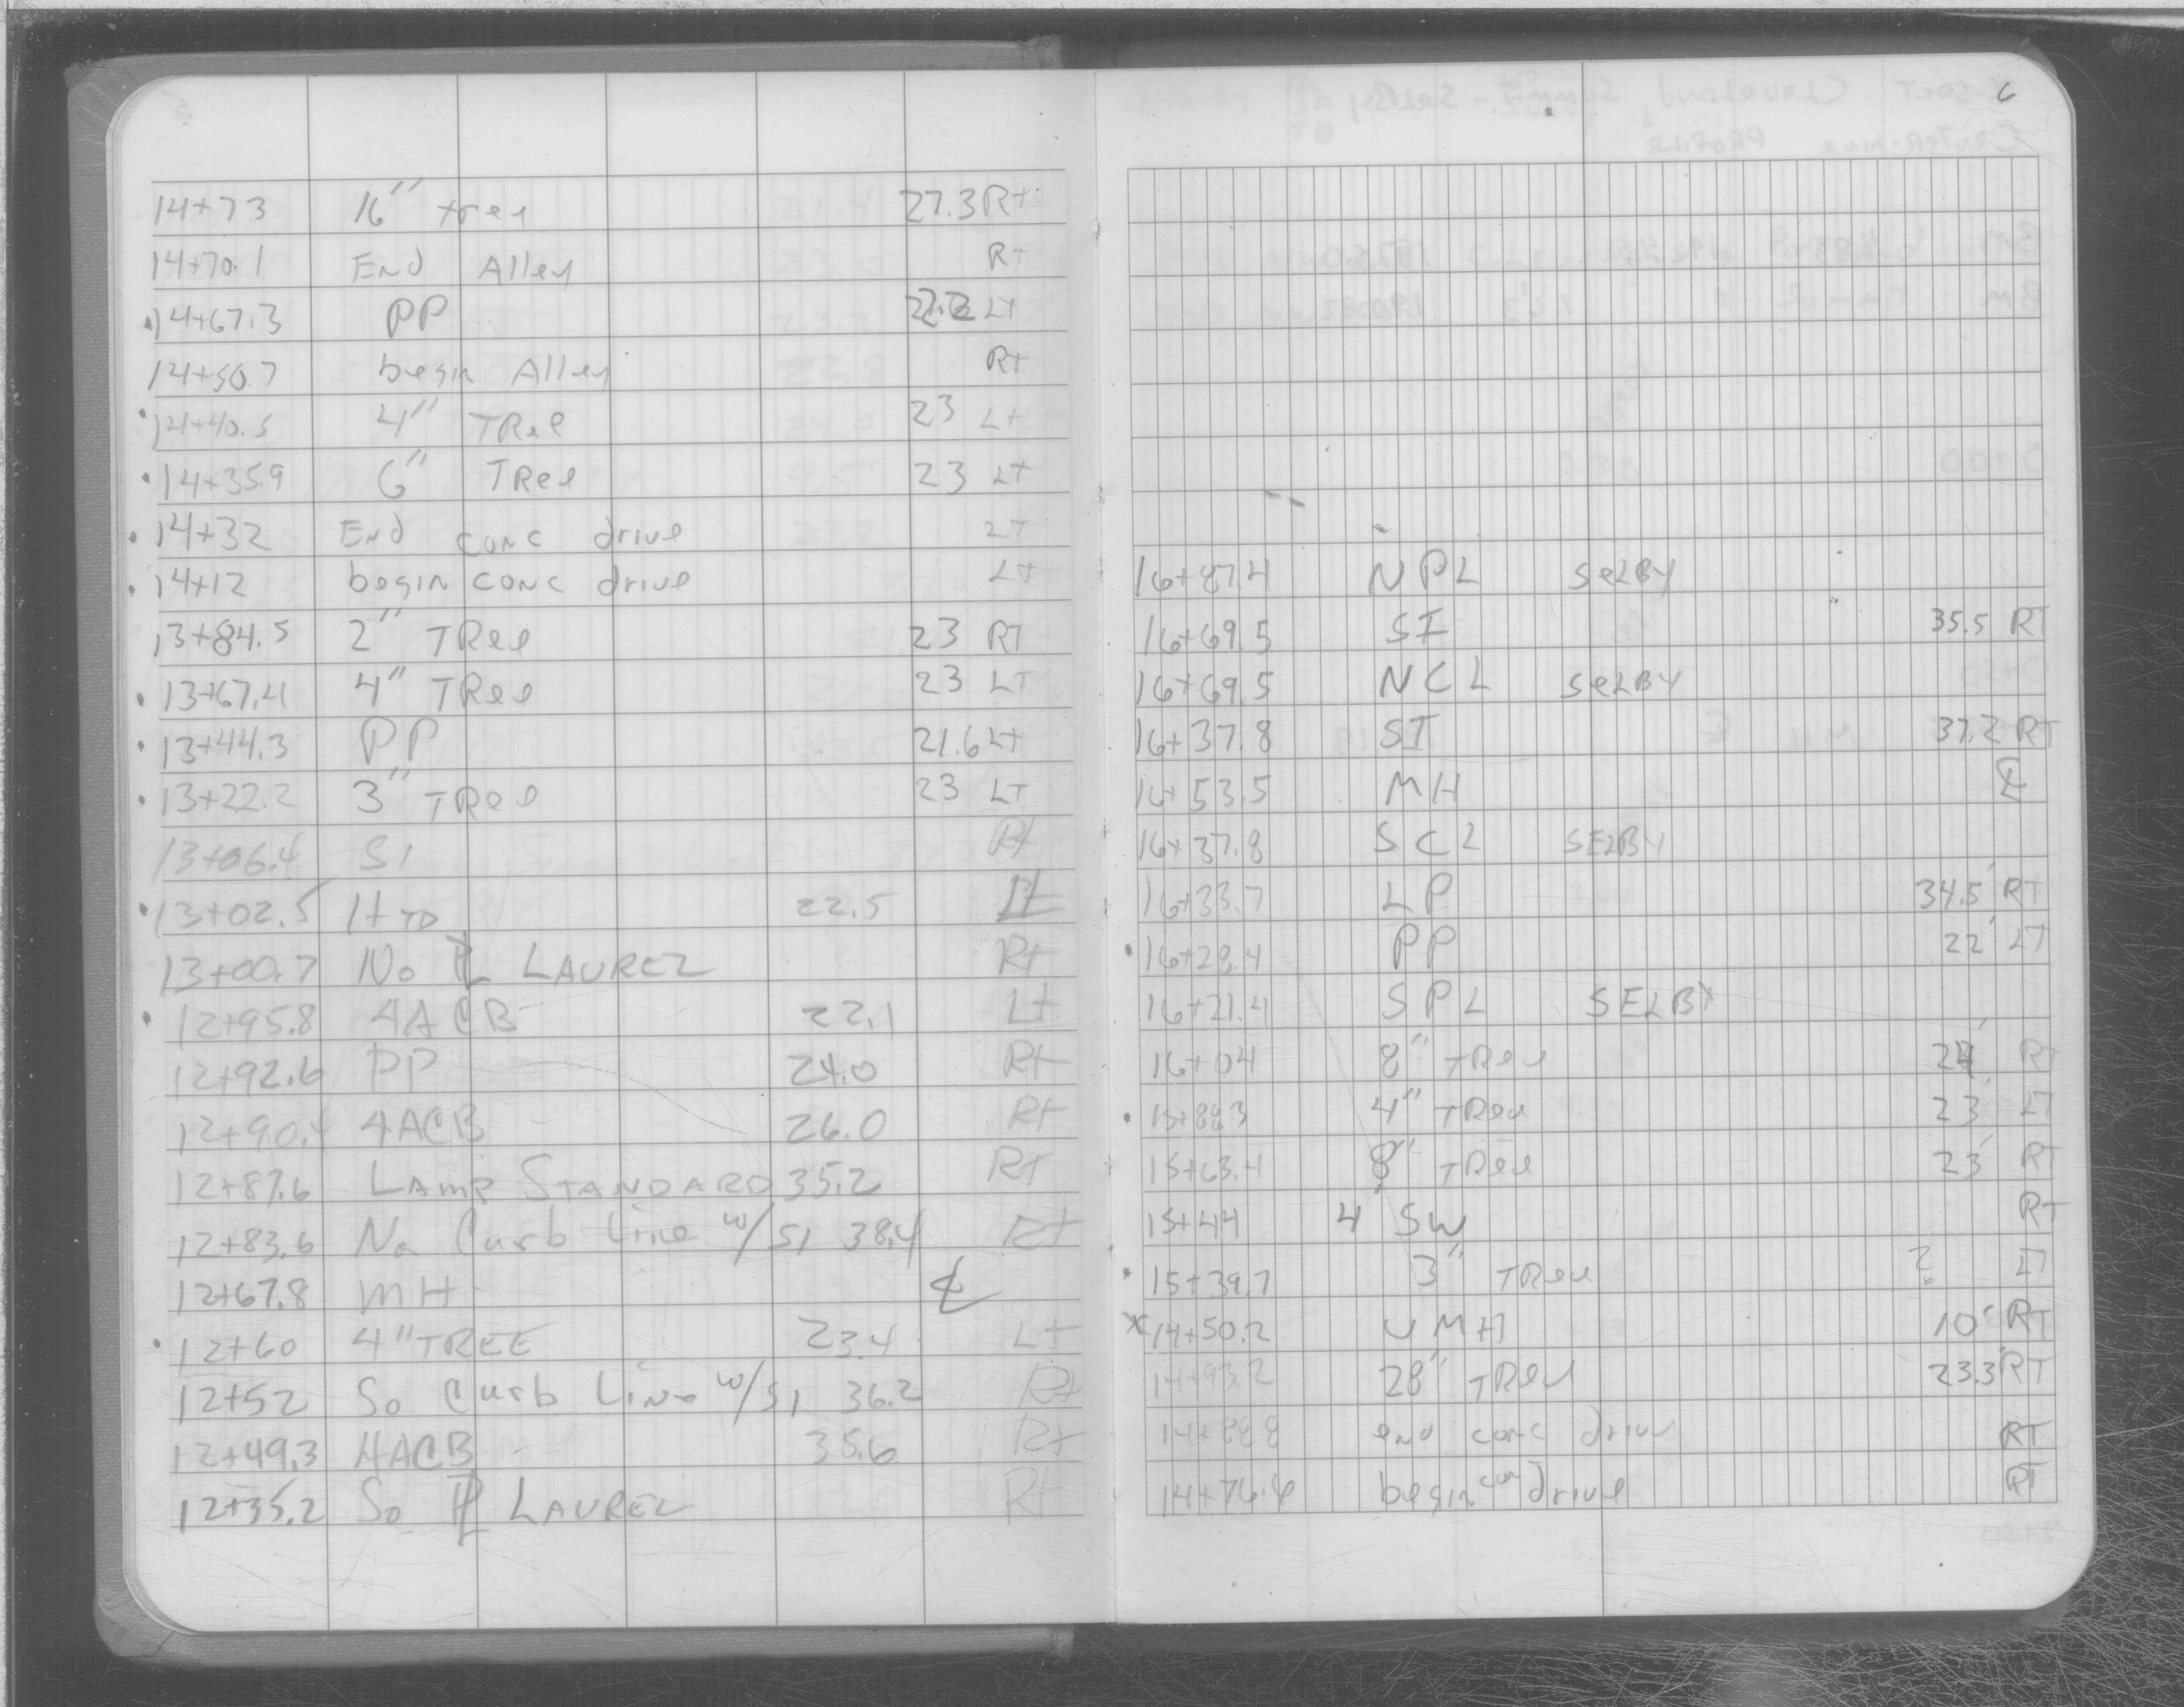 14+73 16" tree 27.3 Rt
14+70.1 End Alley Rt
14+67.3 PP Lt
14+50.7 begin Alley Rt
14+40.5 4" TRee 23 Lt
14+35.9 6" TRee 23 LT
14+32 End conc drive LT
14+12 begin conc drive Lt
13+84.5 2" TRee 23 RT
13+67.4 4" TRee 23 LT
13+44.3 PP 21.6 Lt
13+22.2 3" TRee 23 LT
13+06.4 SI Rt
13+02.5 HTD 22.5 Lt
13+00.7 No PL LAUREL Rt
12+95.8 4ACB 22.1 Lt
12+92.6 PP 24.0 Rt
12+90.4 4ACB 26.0 Rt
12+87.6 LAMP STANDARD 35.2 Rt
12+83.6 No Curb Line w/SI 38.4 Rt
12+67.8 MH ℄
12+60 4" TREE 23.4 Lt
12+52 So Curb Line w/SI 36.2 Rt
12+49.3 4ACB 35.6 Rt
12+35.2 So PL LAUREL Rt
6
16+87.4 NPL SELBY
16+69.5 SI 35.5 RT
16+69.5 NCL SELBY
16+37.8 SI 37.2 RT
16+53.5 MH ℄
16+37.8 SCL SELBY
16+33.7 LP 34.5' RT
16+28.4 PP 22' LT
16+21.4 SPL SELBY
16+04 8" TRee 24' RT
15+88.3 4" TRee 23' LT
15+63.4 8" TRee 23' RT
15+44 4 SW RT
15+39.7 3" TRee ? LT
x 14+50.2 UMH 10' RT
14+93.2 28" TRee 23.3' RT
14+88.8 end conc drive RT
14+76.6 begin con drive RT